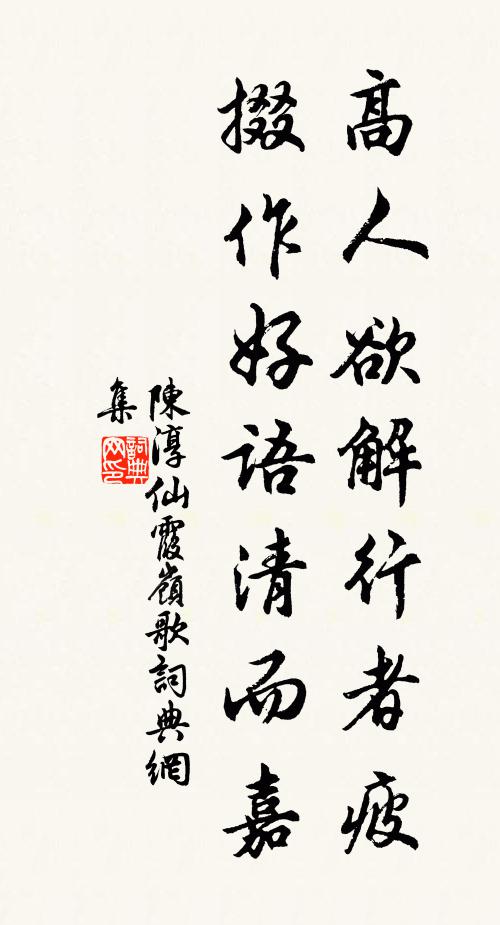 高人欲解行者疲
掇作好語清而嘉
陳淳仙霞嶺歌詞典網
集
詞典
网印